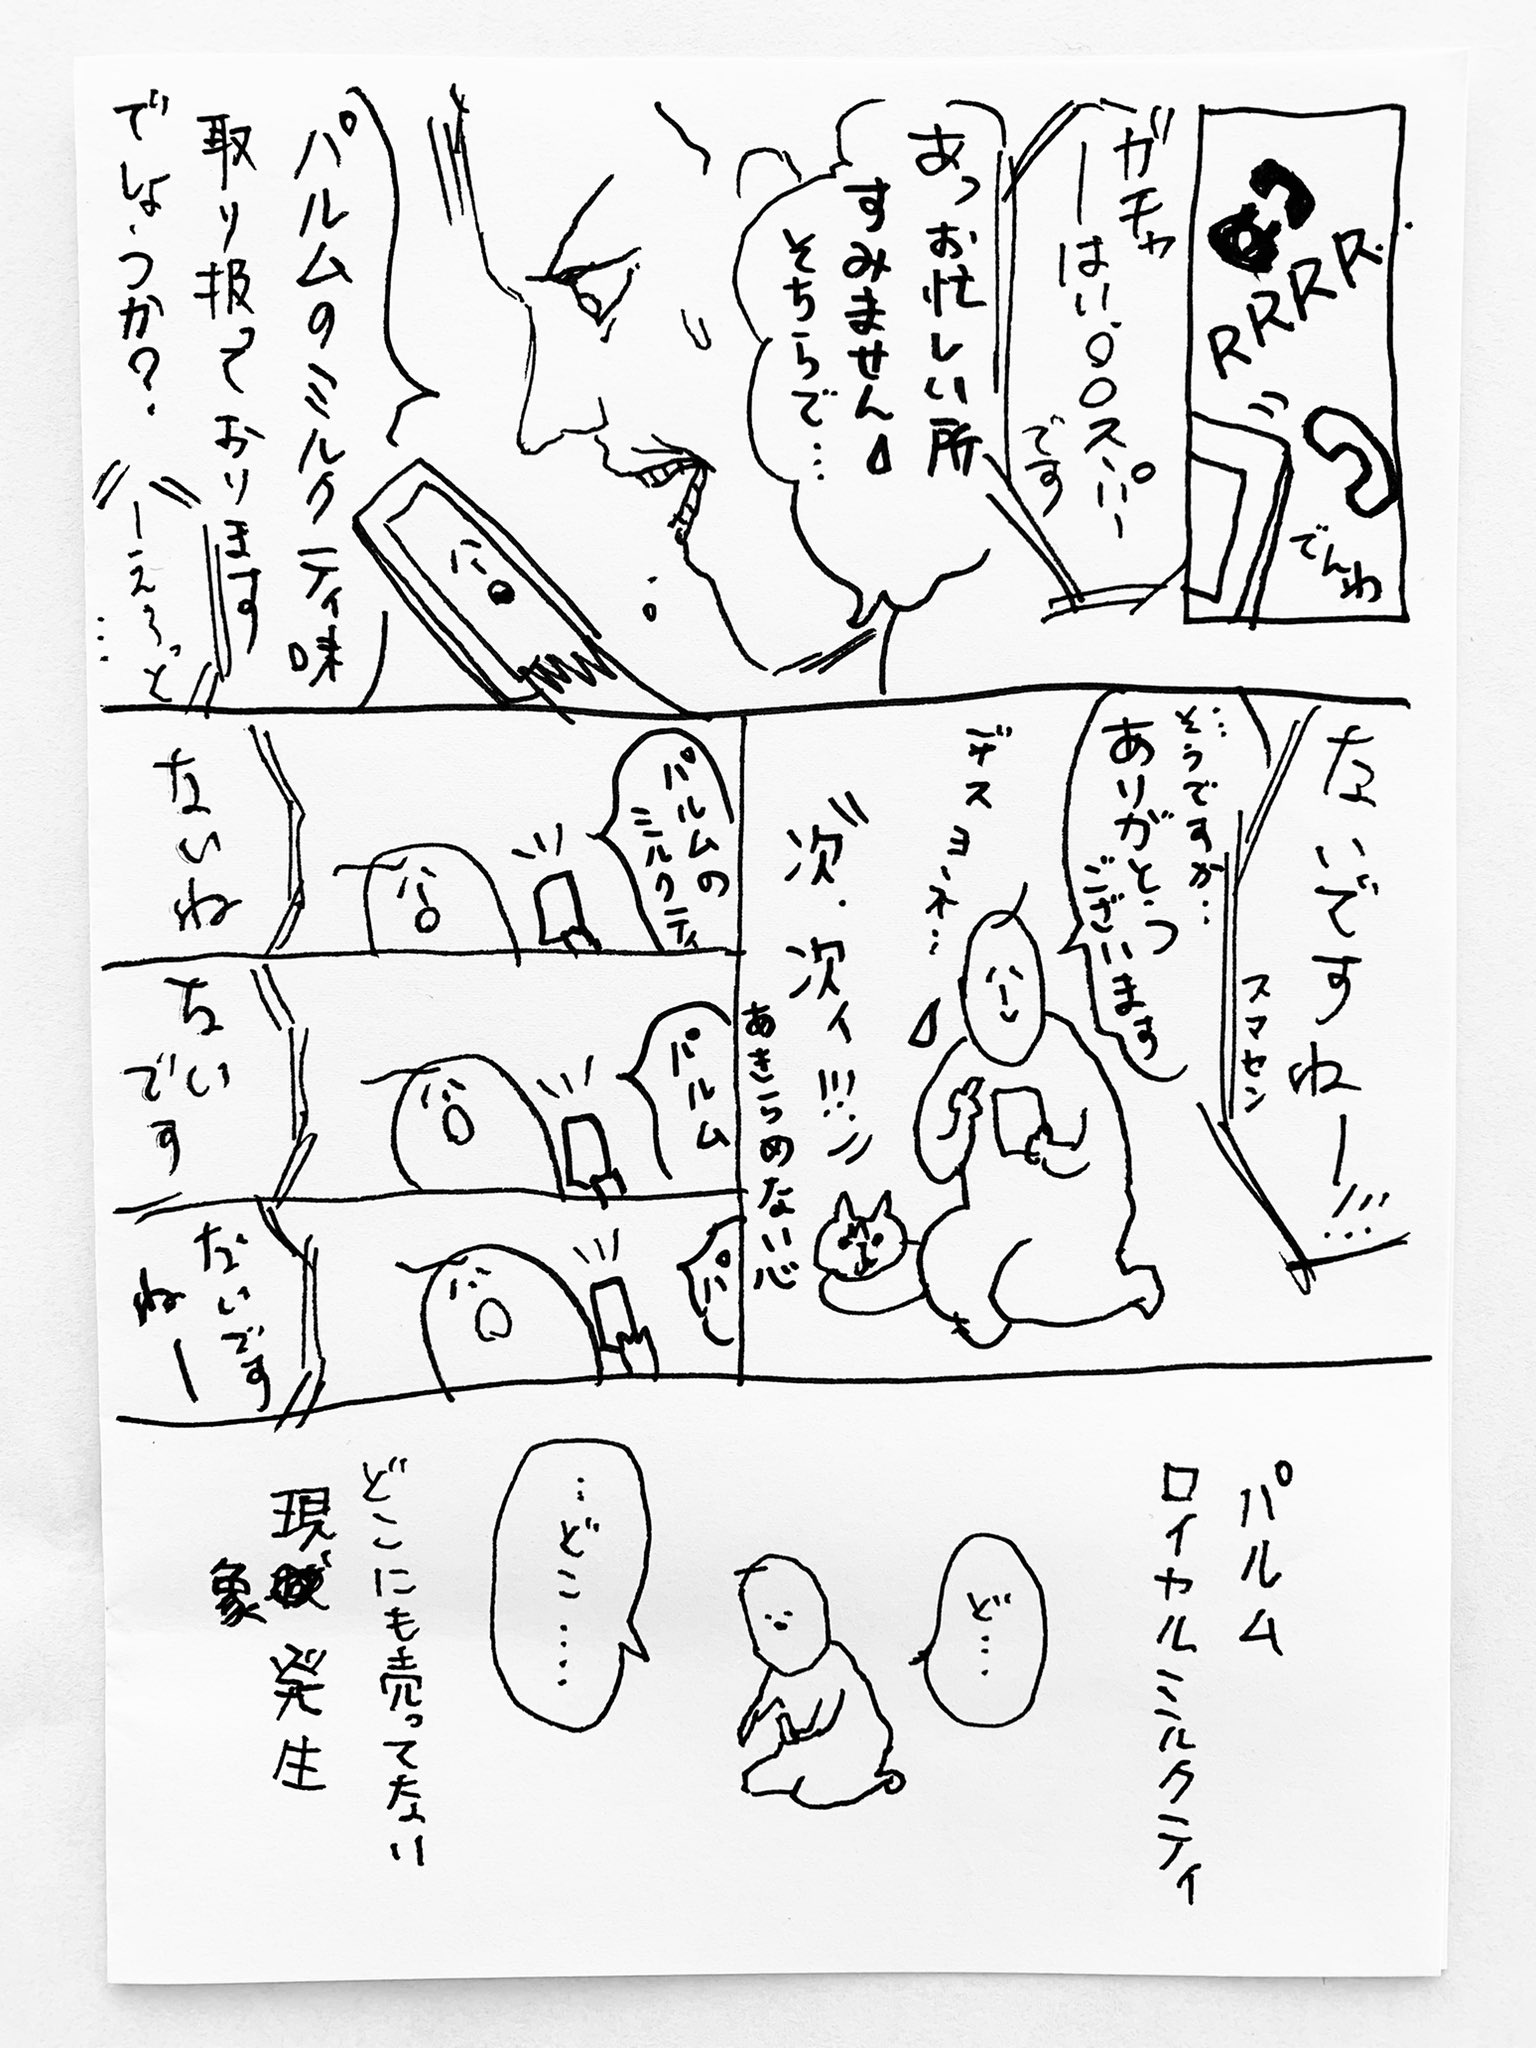 RRRR
でんわ
ガチャ
ーはい。〇〇スーパー
です
あっお忙しい所
すみません
そちらで…
パルムのミルクティ味
取り扱っております
でしょうか?
ーえろっと
…
ないですねー!!!
スマセン
…そうですか…
ありがとう
ございます
デスヨーネ…
次、次ィ!!!
あきらめない心
パルムの
ミルクティ
ないね
パルム
ない
です
パ
ないです
ねー
パルム
ロイヤルミルクティ
ど…
…どこ……
どこにも売ってない
現象発生